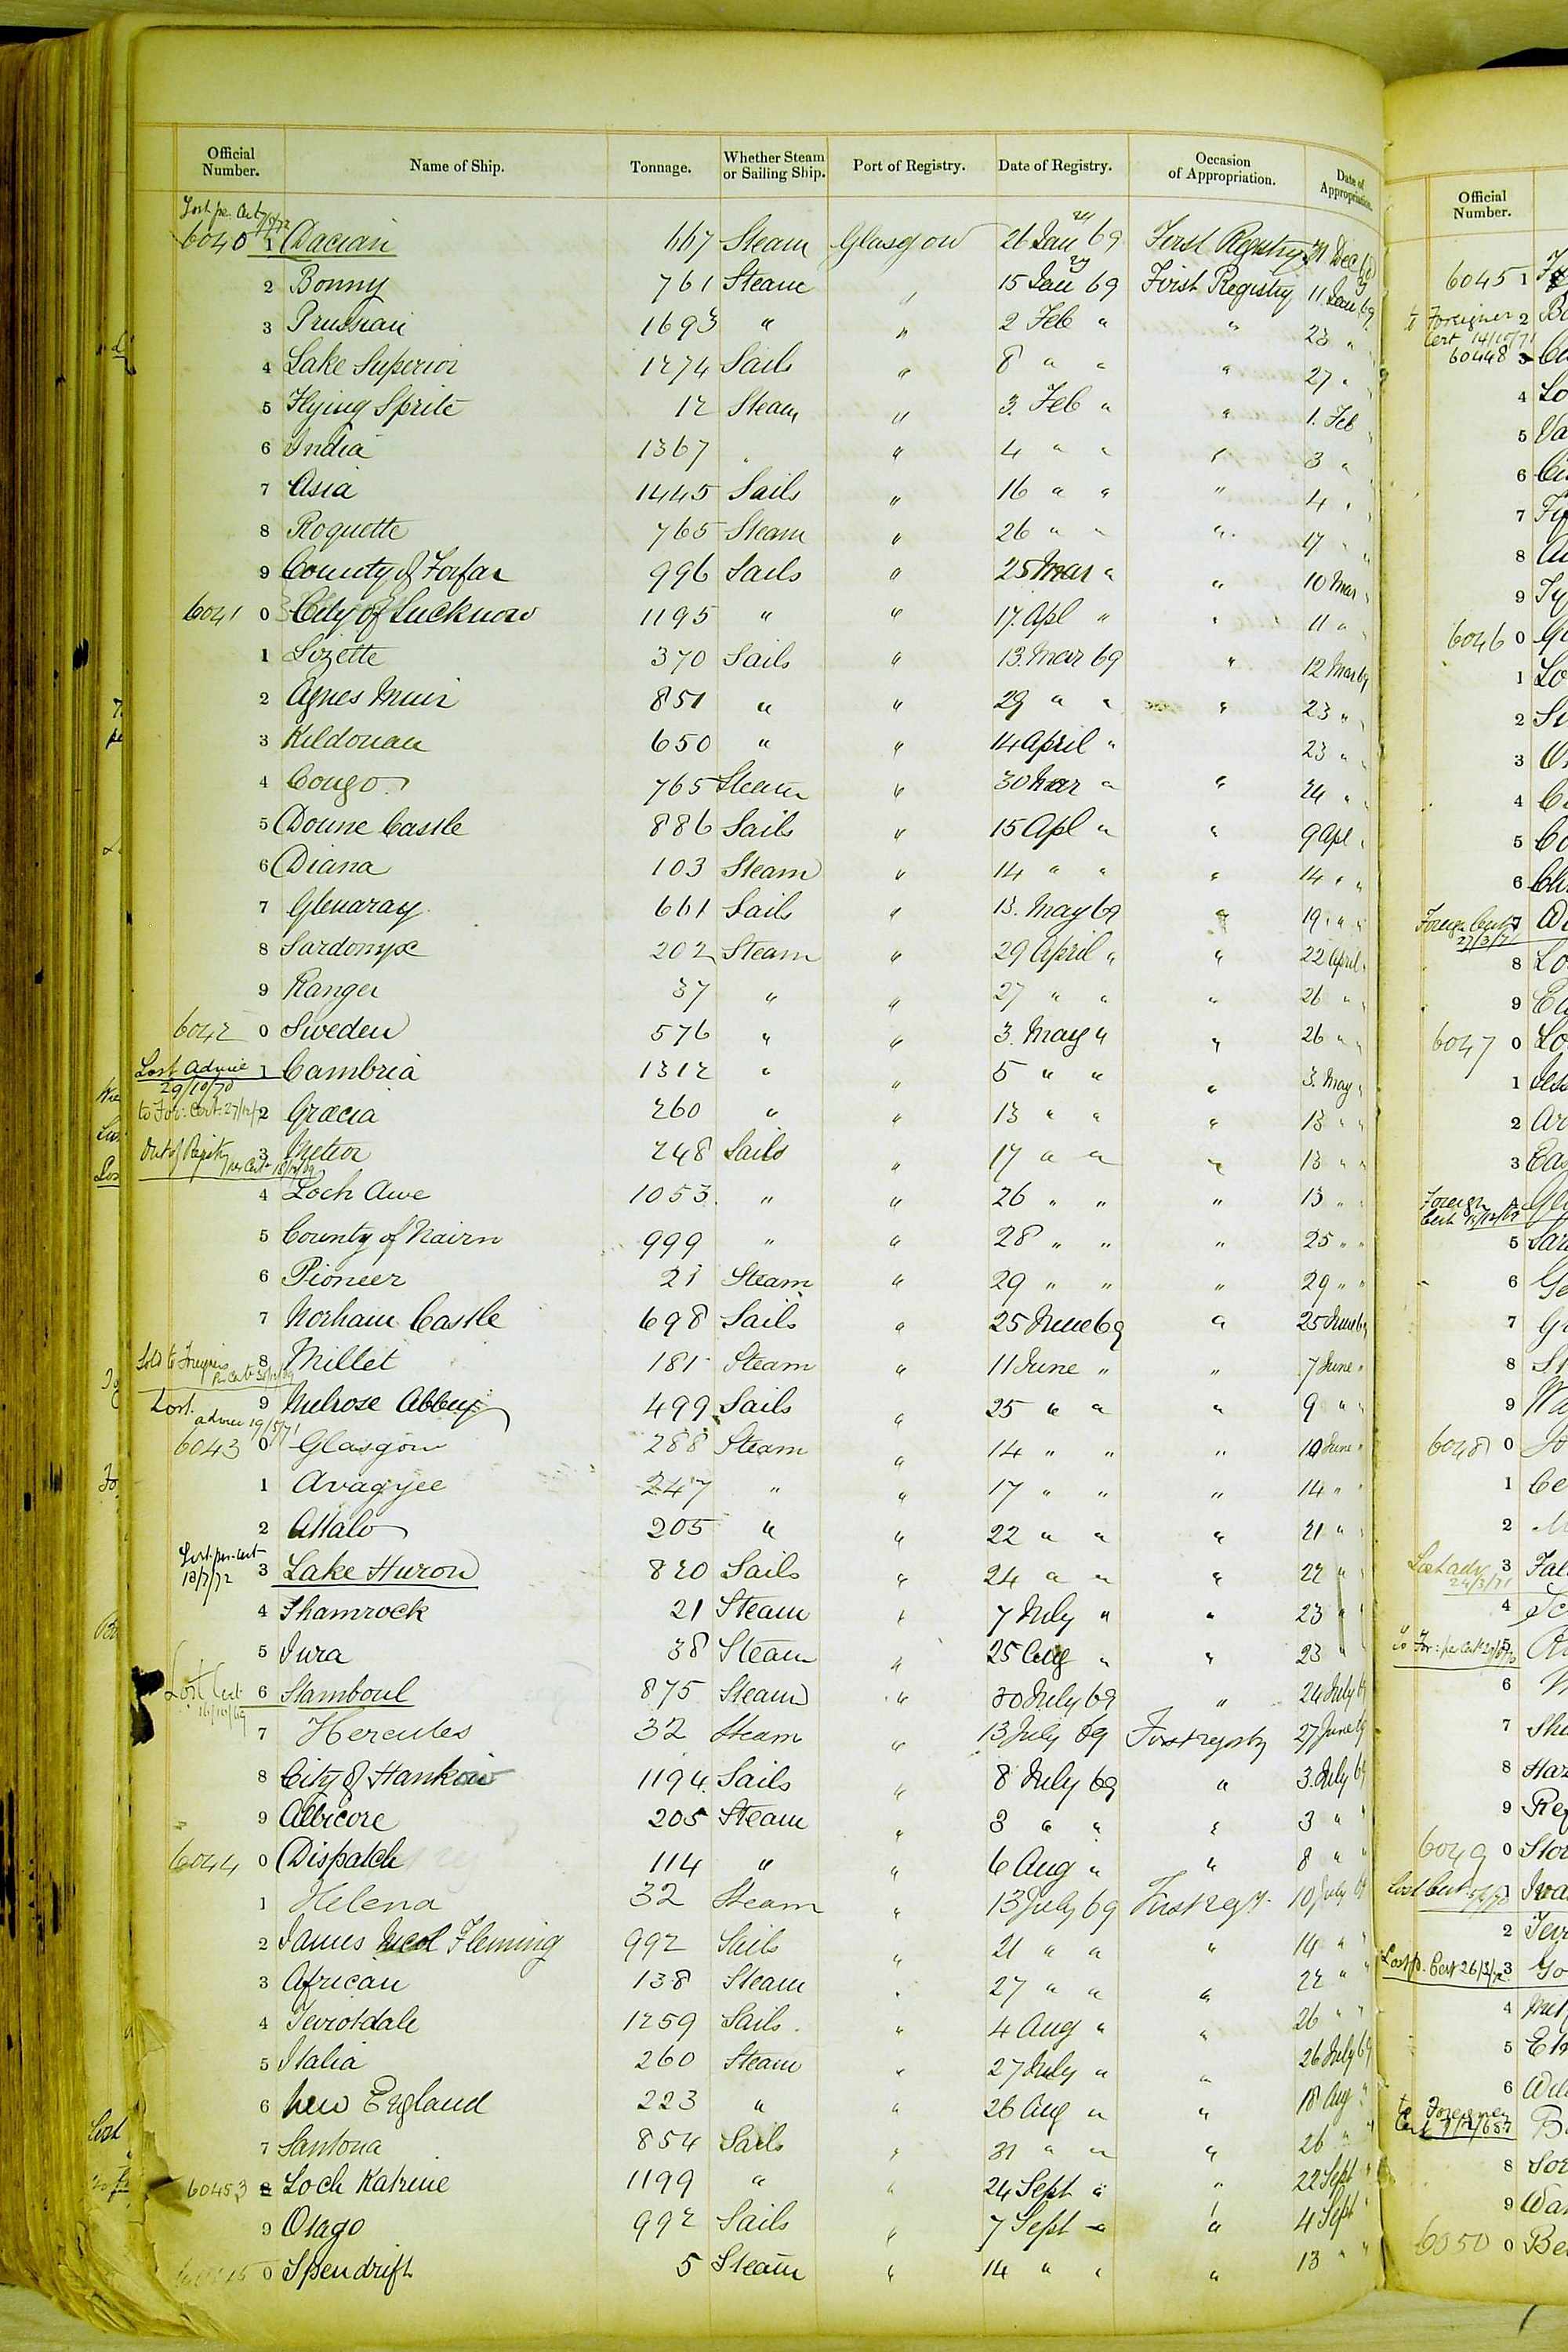 Official Number. Name of Ship. Tonnage. Whether Steam or Sailing Ship. Port of Registry. Date of Registry. Occasion of Appropriation. Date of Appropriation.
Lost per Cert
6040 1 Dacian 667 Steam Glasgow 26 Jan 69 First Registry 31 Dec
2 Bonny 761 Steam " 15 Jan 69 First Registry 11 Jan 69
3 Prussian 1693 " " 2 Feb " " 23 "
4 Lake Superior 1274 Sails " 8 " " " 27 "
5 Flying Sprite 12 Steam " 3. Feb " " 1. Feb
6 India 1367 " " 4 " " " 3 "
7 Asia 1445 Sails " 16 " " " 4 "
8 Roquette 765 Steam " 26 " " " 17 "
9 County of Forfar 996 Sails " 25 Mar " " 10 Mar "
6041 0 City of Lucknow 1195 " " 17. Apl " " 11 "
1 Lizette 370 Sails " 13. Mar 69 " 12 Mar 69
2 Agnes Muir 851 " " 29 " " " 23 "
3 Kildonan 650 " " 14 April " 23 "
4 Congo 765 Steam " 30 Mar " " 24 "
5 Doune Castle 886 Sails " 15 Apl " " 9 Apl "
6 Diana 103 Steam " 14 " " " 14 " "
7 Glenaray 661 Sails " 13. May 69 " 19 " "
8 Sardonyx 202 Steam " 29 April " " 22 April
9 Ranger 37 " " 27 " " " 26 "
6042 0 Sweden 576 " " 3. May " " 26 " "
Lost Advice 29/10/70 1 Cambria 1312 " " 5 " " " 3. May "
to For: Cert. 27/12/ 2 Græcia 260 " " 13 " " " 13 " "
Out of Registry per Cert 3 Meteor 248 Sails " 17 " " " 13 " "
4 Loch Awe 1053 " " 26 " " " 13 "
5 County of Nairn 999 " " 28 " " " 25 " "
6 Pioneer 21 Steam " 29 " " " 29 " "
7 Norham Castle 698 Sails " 25 June 69 " 25 June 69
Sold to Foreigners Per Cert 8 Millet 181 Steam " 11 June " " 7 June "
Lost. advice 19/5/71 9 Melrose Abbey 499 Sails " 25 " " " 9 " "
6043 0 Glasgow 288 Steam " 14 " " " 10 June "
1 Avagyee 247 " " 17 " " " 14 " "
2 Attalo 205 " " 22 " " " 21 "
Lost per cert 18/7/72 3 Lake Huron 820 Sails " 24 " " " 22 "
4 Shamrock 21 Steam " 7 July " " 23 "
5 Jura 38 Steam " 25 Aug " " 23 "
Lost Cert 16/10/69 6 Stamboul 875 Steam " 30 July 69 " 24 July 69
7 Hercules 32 Steam " 13 July 69 First registry 27 June 69
8 City of Hankow 1194 Sails " 8 July 69 " 3. July 69
9 Albicore 205 Steam " 3 " " " 3 " "
6044 0 Dispatch 114 " " 6 Aug " " 8 " "
1 Helena 32 Steam " 13 July 69 First regy. 10 July 69
2 James Nicol Fleming 992 Sails " 21 " " " 14 " "
3 African 138 Steam " 27 " " " 22 " "
4 Teviotdale 1259 Sails " 4 Aug " " 26 " "
5 Italia 260 Steam " 27 July " " 26 July 69
6 New England 223 " " 26 Aug " " 18 Aug "
7 Santona 854 Sails " 31 " " " 26 " "
60453 8 Loch Katrine 1199 " " 24 Sept " " 22 Sept "
9 Otago 992 Sails " 7 Sept " " 4 Sept "
0 Spendrift 5 Steam " 14 " " " 13 " "
Official Number.
6045 1
to Foreigner 2
Cert 14/10/71
60448 3
4 Lo
5 Va
6
7
8
9
6046 0
1 Lo
2
3
4
5 Co
6
Foreign Cert 7
27/3/71
8 Lo
9
6047 0 Lo
1
2 Ar
3 Eas
Foreign 4
Cert
5 Sar
6 Ge
7
8
9 Wa
6048 0
1
2
Lost adv 3 Fal
24/3/71
4
5
6
7 She
8 Haz
9
6049 0 Stor
Lost Cert 1
2
Lost p. Cert 26/3/72 3
4
5
6
to Foreigner
Cert
8 Sor
9 War
6050 0 Be